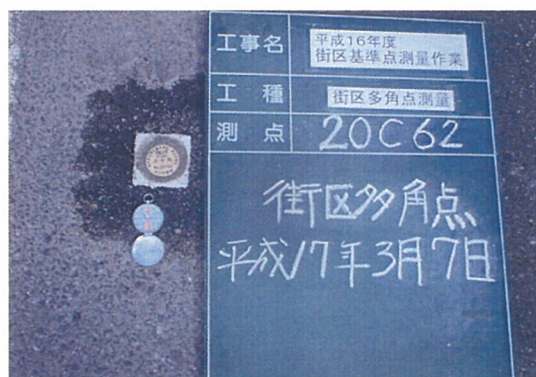 工事名
平成16年度
街区基準点測量作業
工種
街区多角点測量
測点
20C62
街区多角点
平成17年3月7日